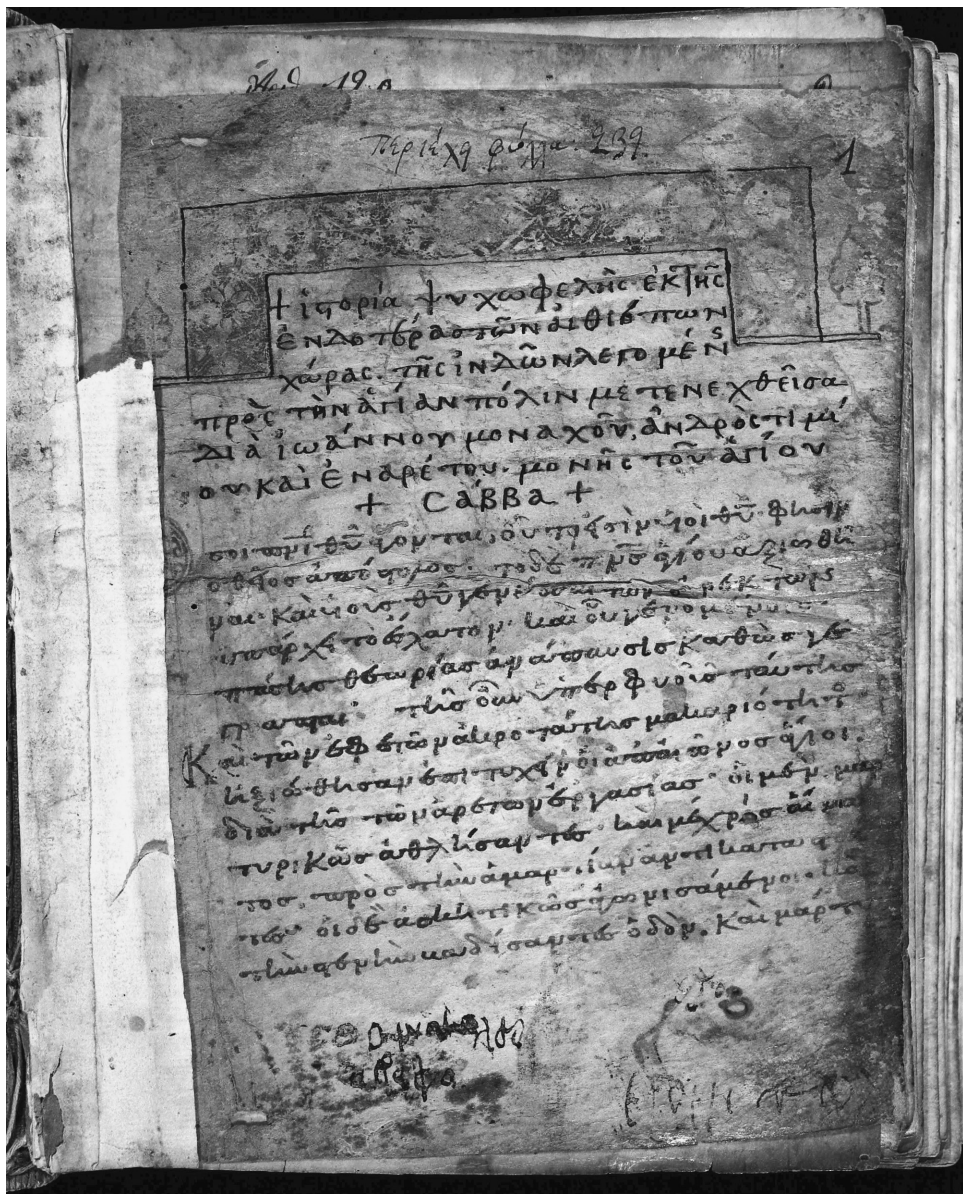 περιέχη φύλλα 239
1
+ ἱστορία ψυχωφελὴς ἐκ τῆς
ἐνδοτέρας τῶν αἰθιόπων
χώρας. τῆς ἰνδῶν λεγομέν
πρὸς τὴν ἁγίαν πόλιν μετενεχθεῖσα
διὰ ἰωάννου μοναχοῦ, ἀνδρὸς τιμί
ου καὶ ἐναρέτου. μονῆς τοῦ ἁγίου
+ Σάββα +
ὅσοι πνι θυ ἄγονται, οὗτοί εἰσιν υἱοὶ θυ φησὶν
ὁ θεῖος ἀπόστολος. τὸ δὲ πνς ἁγίου ἀξιωθῆ
ναι καὶ υἱοὺς θυ γενέσθαι τῶν ὀρεκτῶν
ὑπάρχει τὸ ἔσχατον. καὶ οὗ γενομένοις
πάσης θεωρίας ἀνάπαυσις καθὼς γέ
γραπται. τῆς οὖν ὑπερφυοῦς ταύτης
Καὶ τῶν ἐφετῶν ἀκροτάτης μακαριότητ
ἠξιώθησαν ἐπιτυχεῖν οἱ ἀπ αἰῶνος ἅγιοι.
διὰ τῆς τῶν ἀρετῶν ἐργασίας. οἱ μὲν μαρ
τυρικῶς ἀθλήσαντες καὶ μέχρις αἵμα
τος. πρὸς τὴν ἁμαρτίαν ἀντικατα
τες. οἱ δὲ ἀσκητικῶς ἀγωνισάμενοι. καὶ
τὴν στενὴν ὁδεύσαντες ὁδόν. Καὶ μάρτ